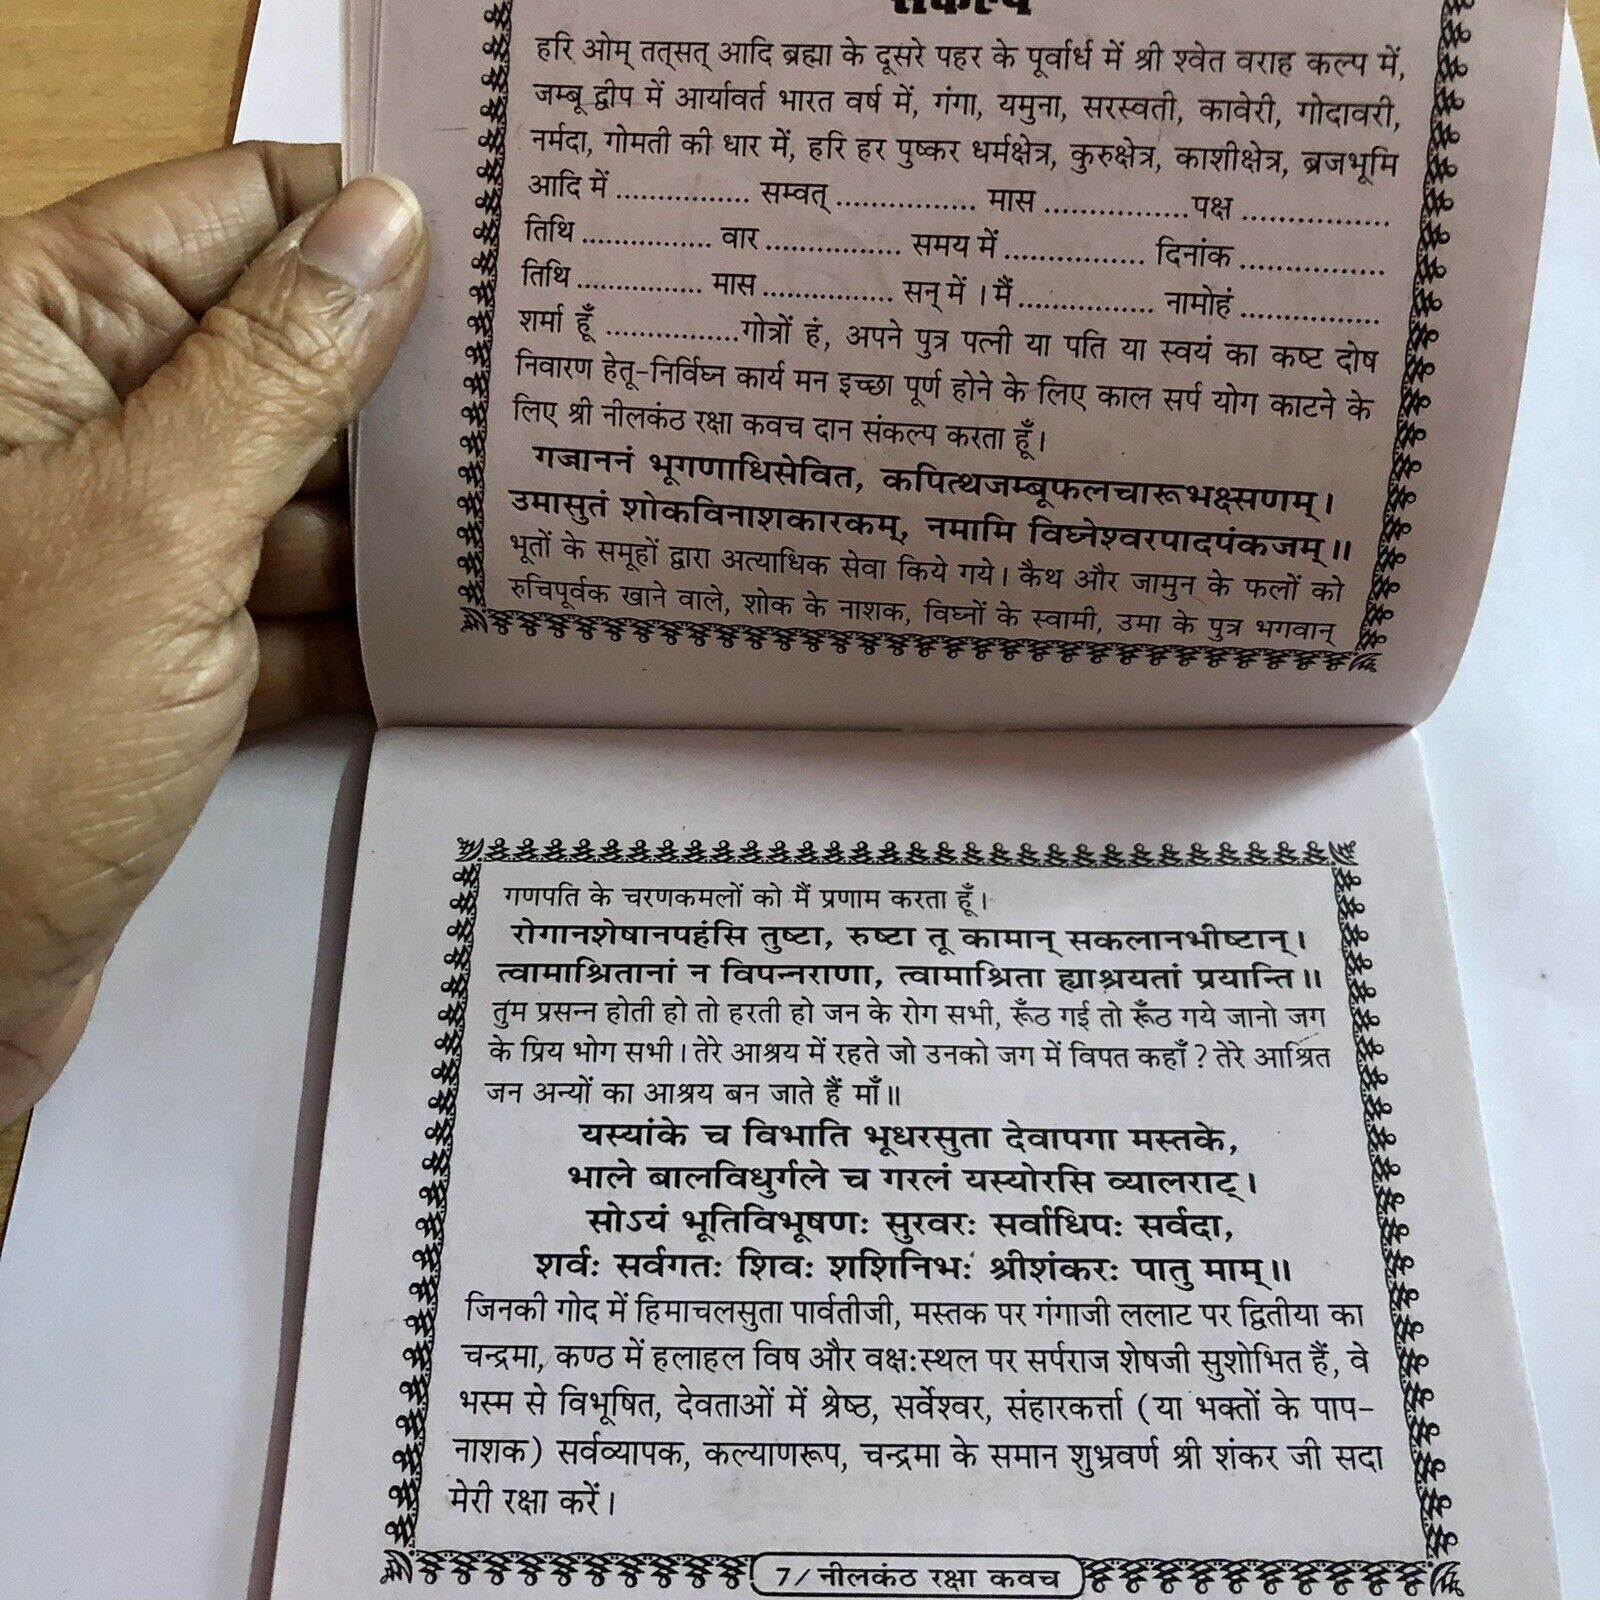 संकल्प
हरि ओम् तत्सत् आदि ब्रह्मा के दूसरे पहर के पूर्वार्ध में श्री श्वेत वराह कल्प में,
जम्बू द्वीप में आर्यावर्त भारत वर्ष में, गंगा, यमुना, सरस्वती, कावेरी, गोदावरी,
नर्मदा, गोमती की धार में, हरि हर पुष्कर धर्मक्षेत्र, कुरुक्षेत्र, काशीक्षेत्र, ब्रजभूमि
आदि में ............... सम्वत् ............... मास ...............पक्ष ...............
तिथि ............... वार ............... समय में ............... दिनांक ...............
तिथि ............... मास ............... सन् में । मैं ............... नामोहं ...............
शर्मा हूँ ...............गोत्रों हं, अपने पुत्र पत्नी या पति या स्वयं का कष्ट दोष
निवारण हेतू-निर्विघ्न कार्य मन इच्छा पूर्ण होने के लिए काल सर्प योग काटने के
लिए श्री नीलकंठ रक्षा कवच दान संकल्प करता हूँ।
गजाननं भूगणाधिसेवित, कपित्थजम्बूफलचारूभक्ष्सणम्।
उमासुतं शोकविनाशकारकम्, नमामि विघ्नेश्वरपादपंकजम्॥
भूतों के समूहों द्वारा अत्याधिक सेवा किये गये। कैथ और जामुन के फलों को
रुचिपूर्वक खाने वाले, शोक के नाशक, विघ्नों के स्वामी, उमा के पुत्र भगवान्
गणपति के चरणकमलों को मैं प्रणाम करता हूँ।
रोगानशेषानपहंसि तुष्टा, रुष्टा तू कामान् सकलानभीष्टान्।
त्वामाश्रितानां न विपन्नराणा, त्वामाश्रिता ह्याश्रयतां प्रयान्ति॥
तुम प्रसन्न होती हो तो हरती हो जन के रोग सभी, रूँठ गई तो रूँठ गये जानो जग
के प्रिय भोग सभी। तेरे आश्रय में रहते जो उनको जग में विपत कहाँ ? तेरे आश्रित
जन अन्यों का आश्रय बन जाते हैं माँ॥
यस्यांके च विभाति भूधरसुता देवापगा मस्तके,
भाले बालविधुर्गले च गरलं यस्योरसि व्यालराट्।
सोऽयं भूतिविभूषणः सुरवरः सर्वाधिपः सर्वदा,
शर्वः सर्वगतः शिवः शशिनिभः श्रीशंकरः पातु माम्॥
जिनकी गोद में हिमाचलसुता पार्वतीजी, मस्तक पर गंगाजी ललाट पर द्वितीया का
चन्द्रमा, कण्ठ में हलाहल विष और वक्ष:स्थल पर सर्पराज शेषजी सुशोभित हैं, वे
भस्म से विभूषित, देवताओं में श्रेष्ठ, सर्वेश्वर, संहारकर्त्ता (या भक्तों के पाप-
नाशक) सर्वव्यापक, कल्याणरूप, चन्द्रमा के समान शुभ्रवर्ण श्री शंकर जी सदा
मेरी रक्षा करें।
7/ नीलकंठ रक्षा कवच